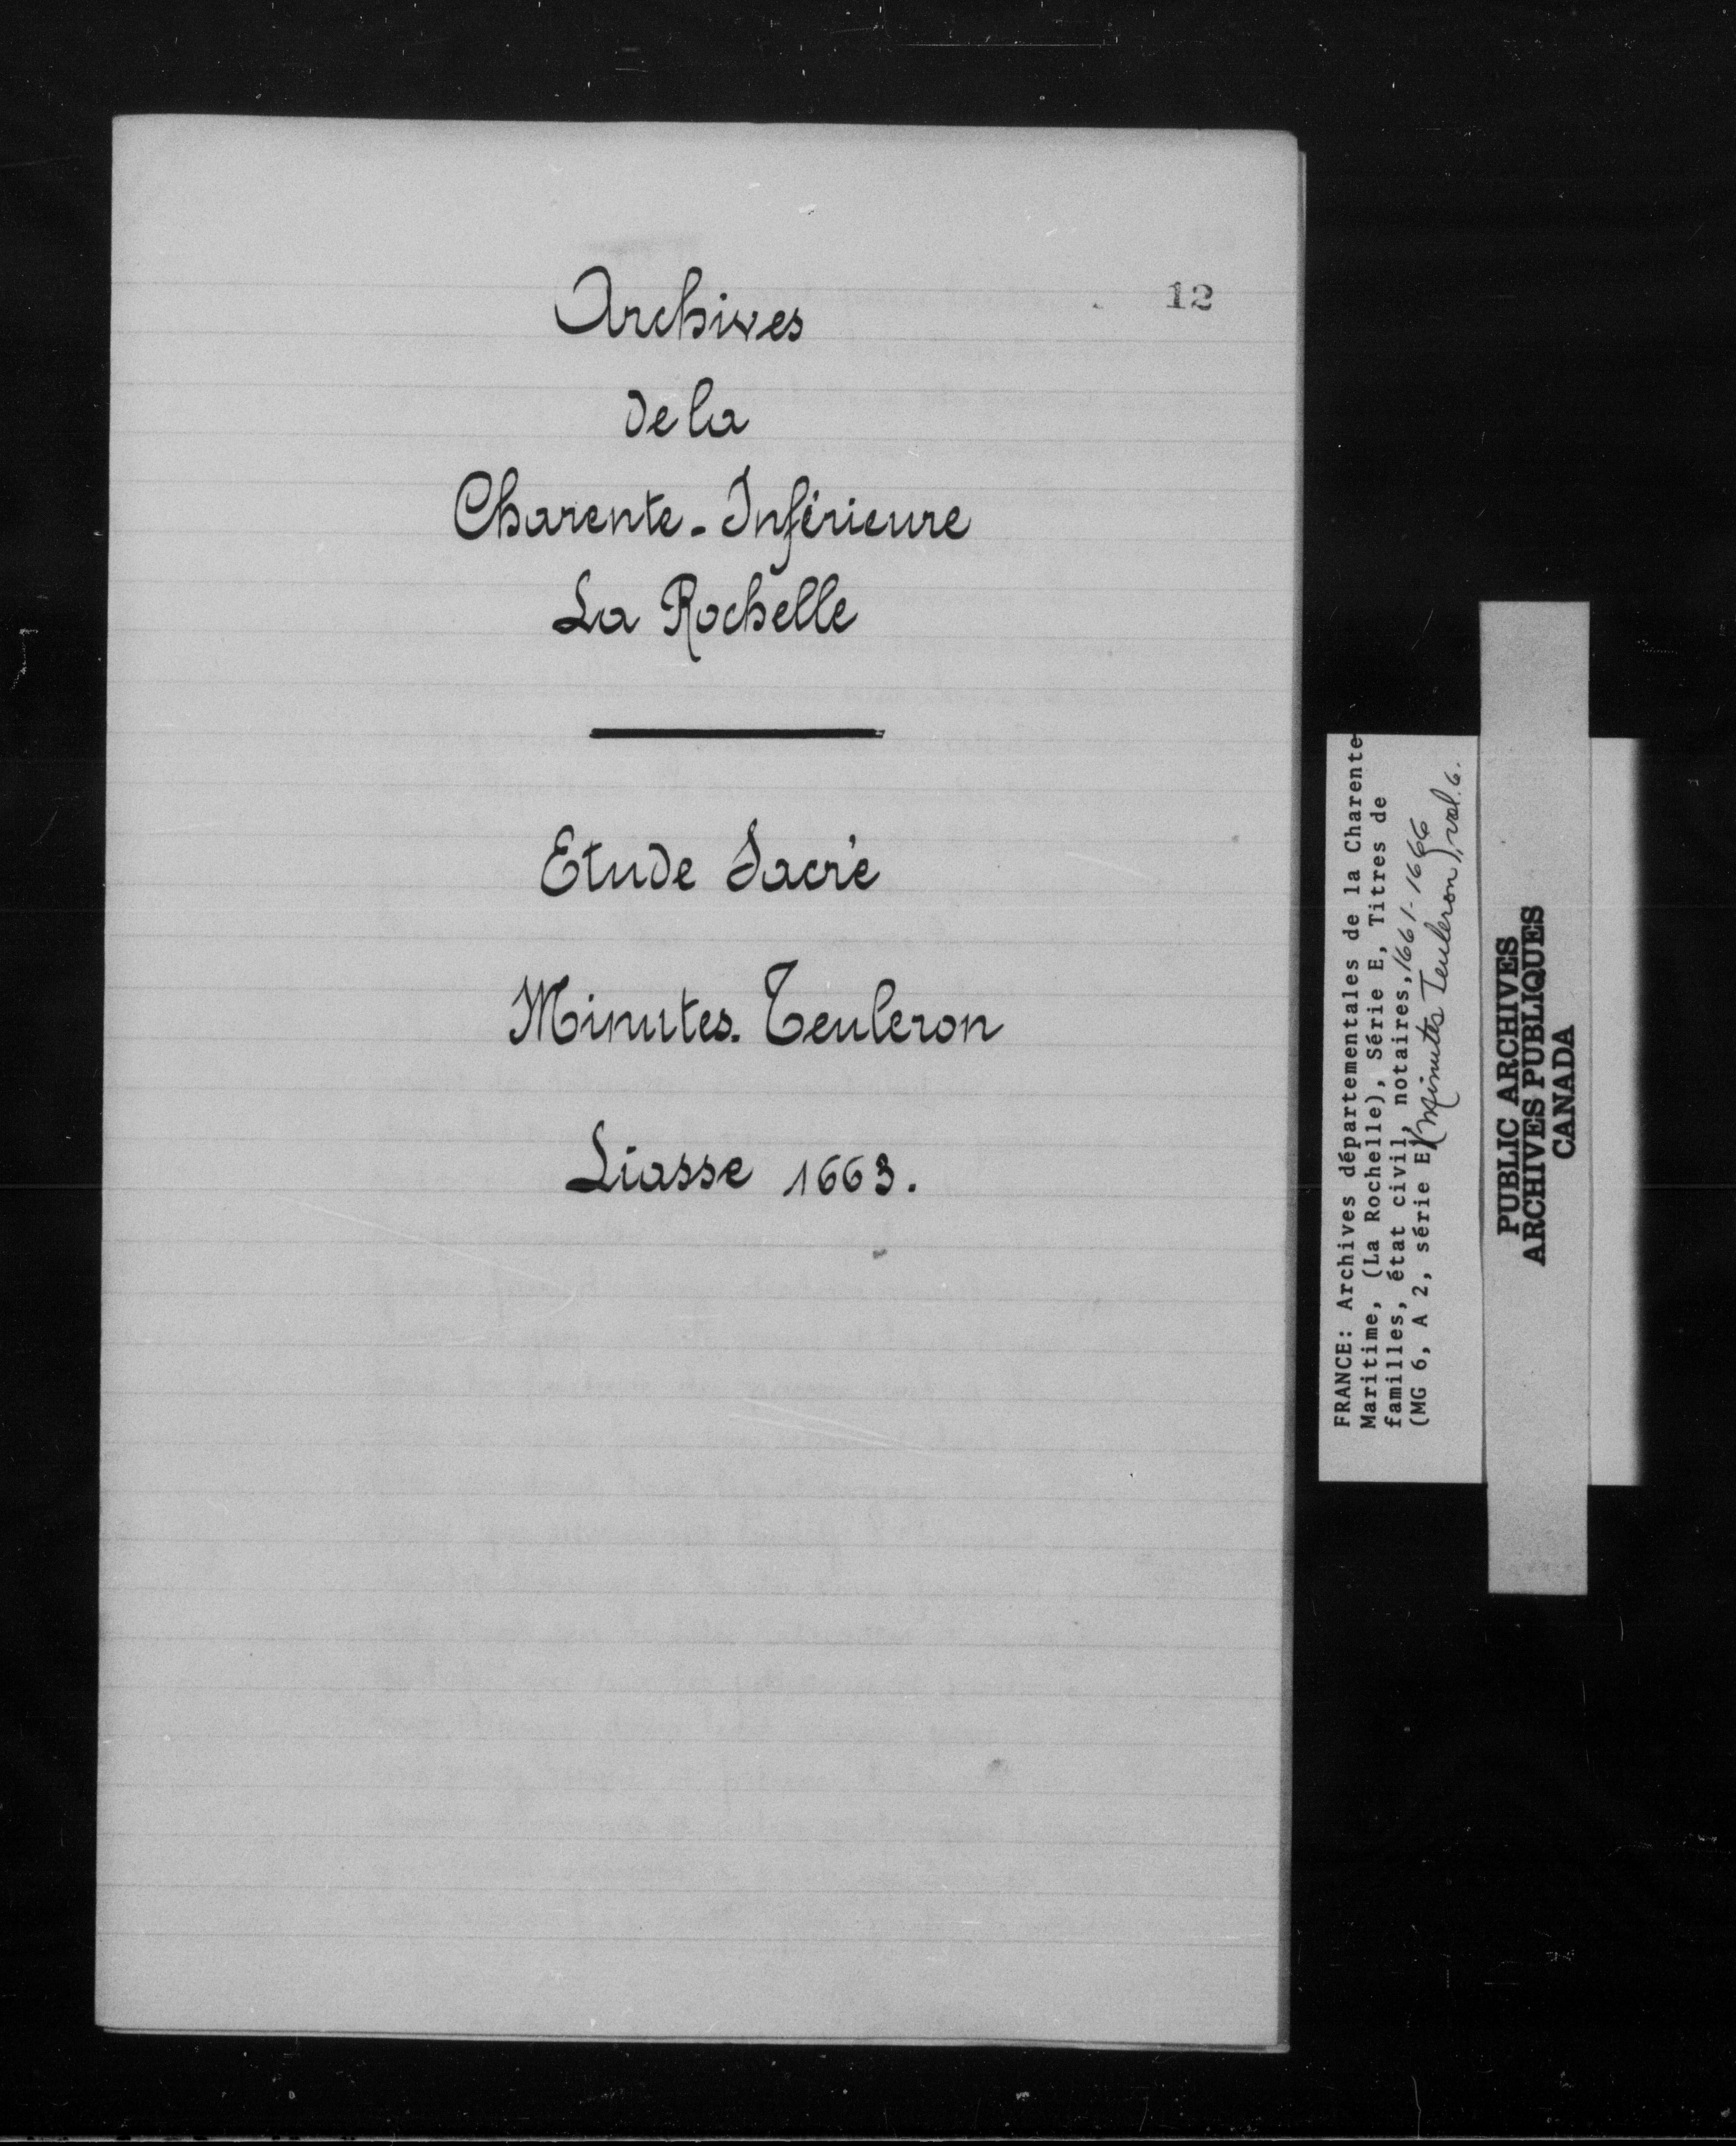 12
Archives
de la
Charente-Inférieure
La Rochelle
Etude Sacré
Minutes. Teuleron
Liasse 1663.
FRANCE: Archives départementales de la Charente-
Maritime, (La Rochelle), Série E, Titres de
familles, état civil, notaires, 1661-1666
(MG 6, A 2, série E) (Minutes Teuleron), vol. 6.
PUBLIC ARCHIVES
ARCHIVES PUBLIQUES
CANADA